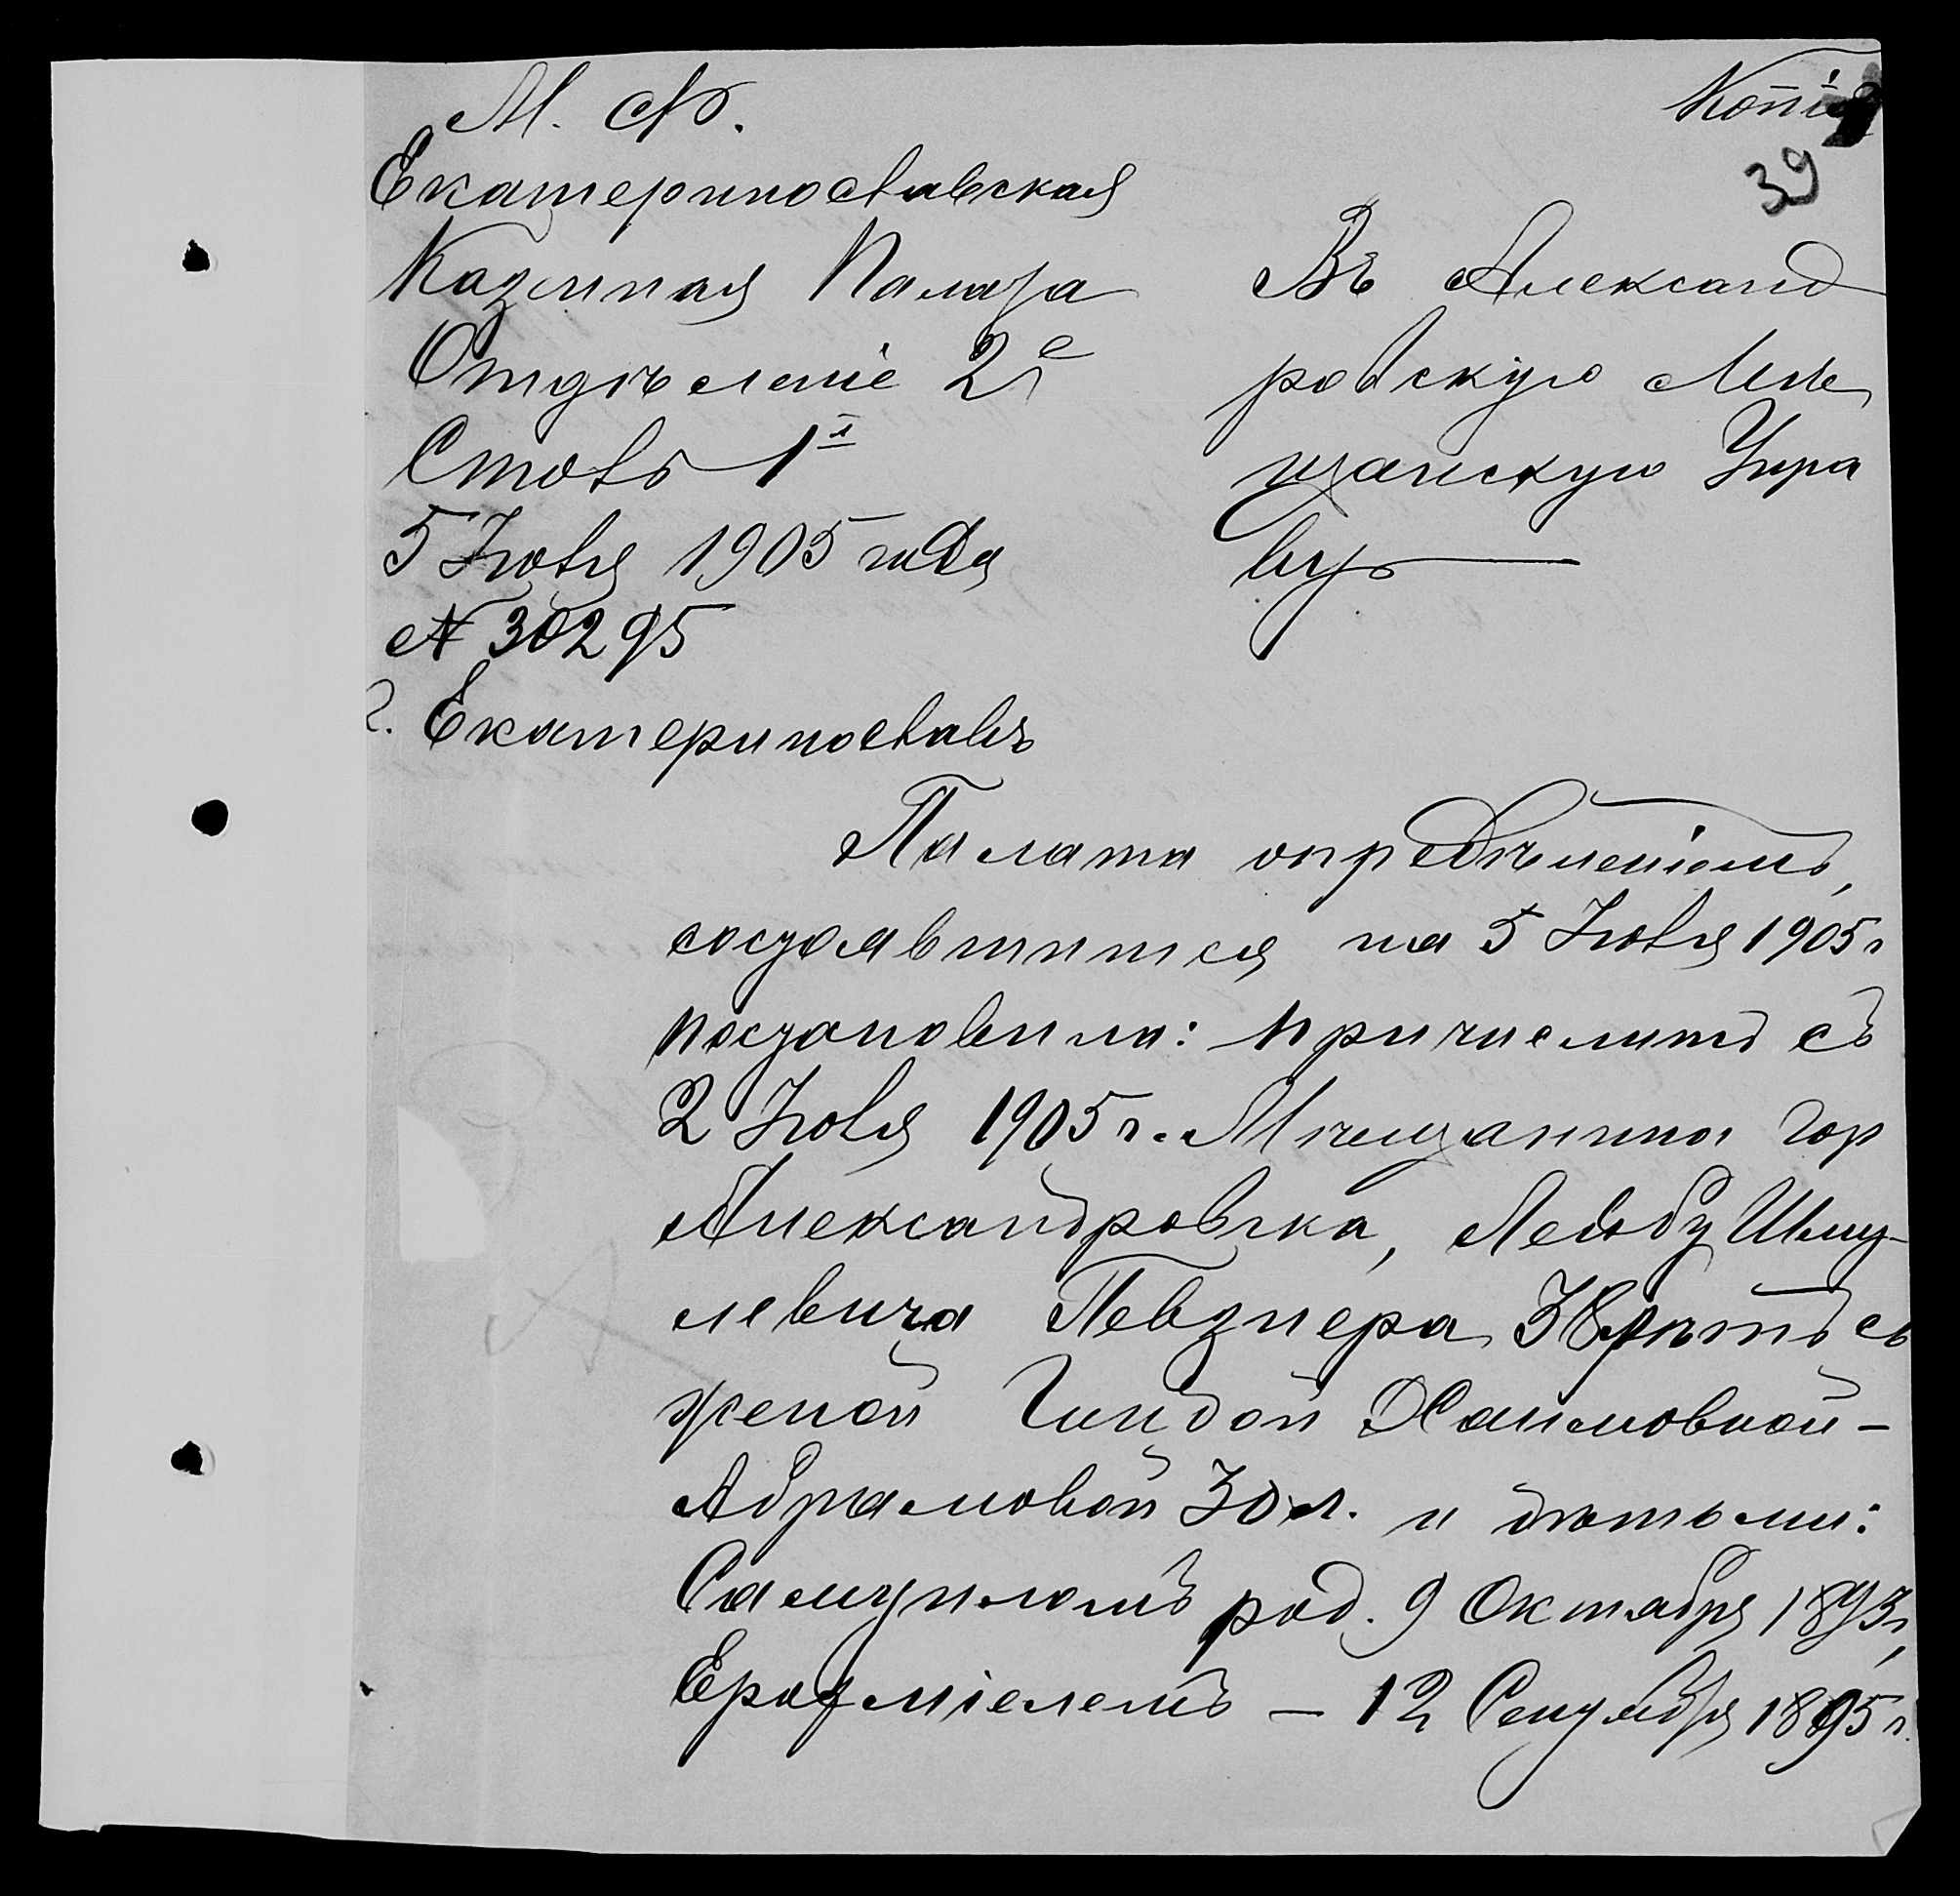 М. Ф.
Копія
39
Екатеринославская
Казенная Палата
Отдѣленіе 2е
Столъ 1й
5 Іюля 1905 года
№ 30295
г. Екатеринославъ
Въ Александ
ровскую Мѣ
щанскую Упра
ву
Палата опредѣленіемъ,
состоявшимся на 5 Іюля 1905 г
постановила: причислить съ
2 Іюля 1905 г. Мѣщанина гор
Александровска, Лейбу Шму-
левича Певзнера 38 лѣтъ съ
женой Гиндой Хаимовной-
Абрамовой 30 л. и дѣтьми:
Самуиломъ род. 9 Октября 1893 г,
Ерахміелемъ – 12 Сентября 1895 г.